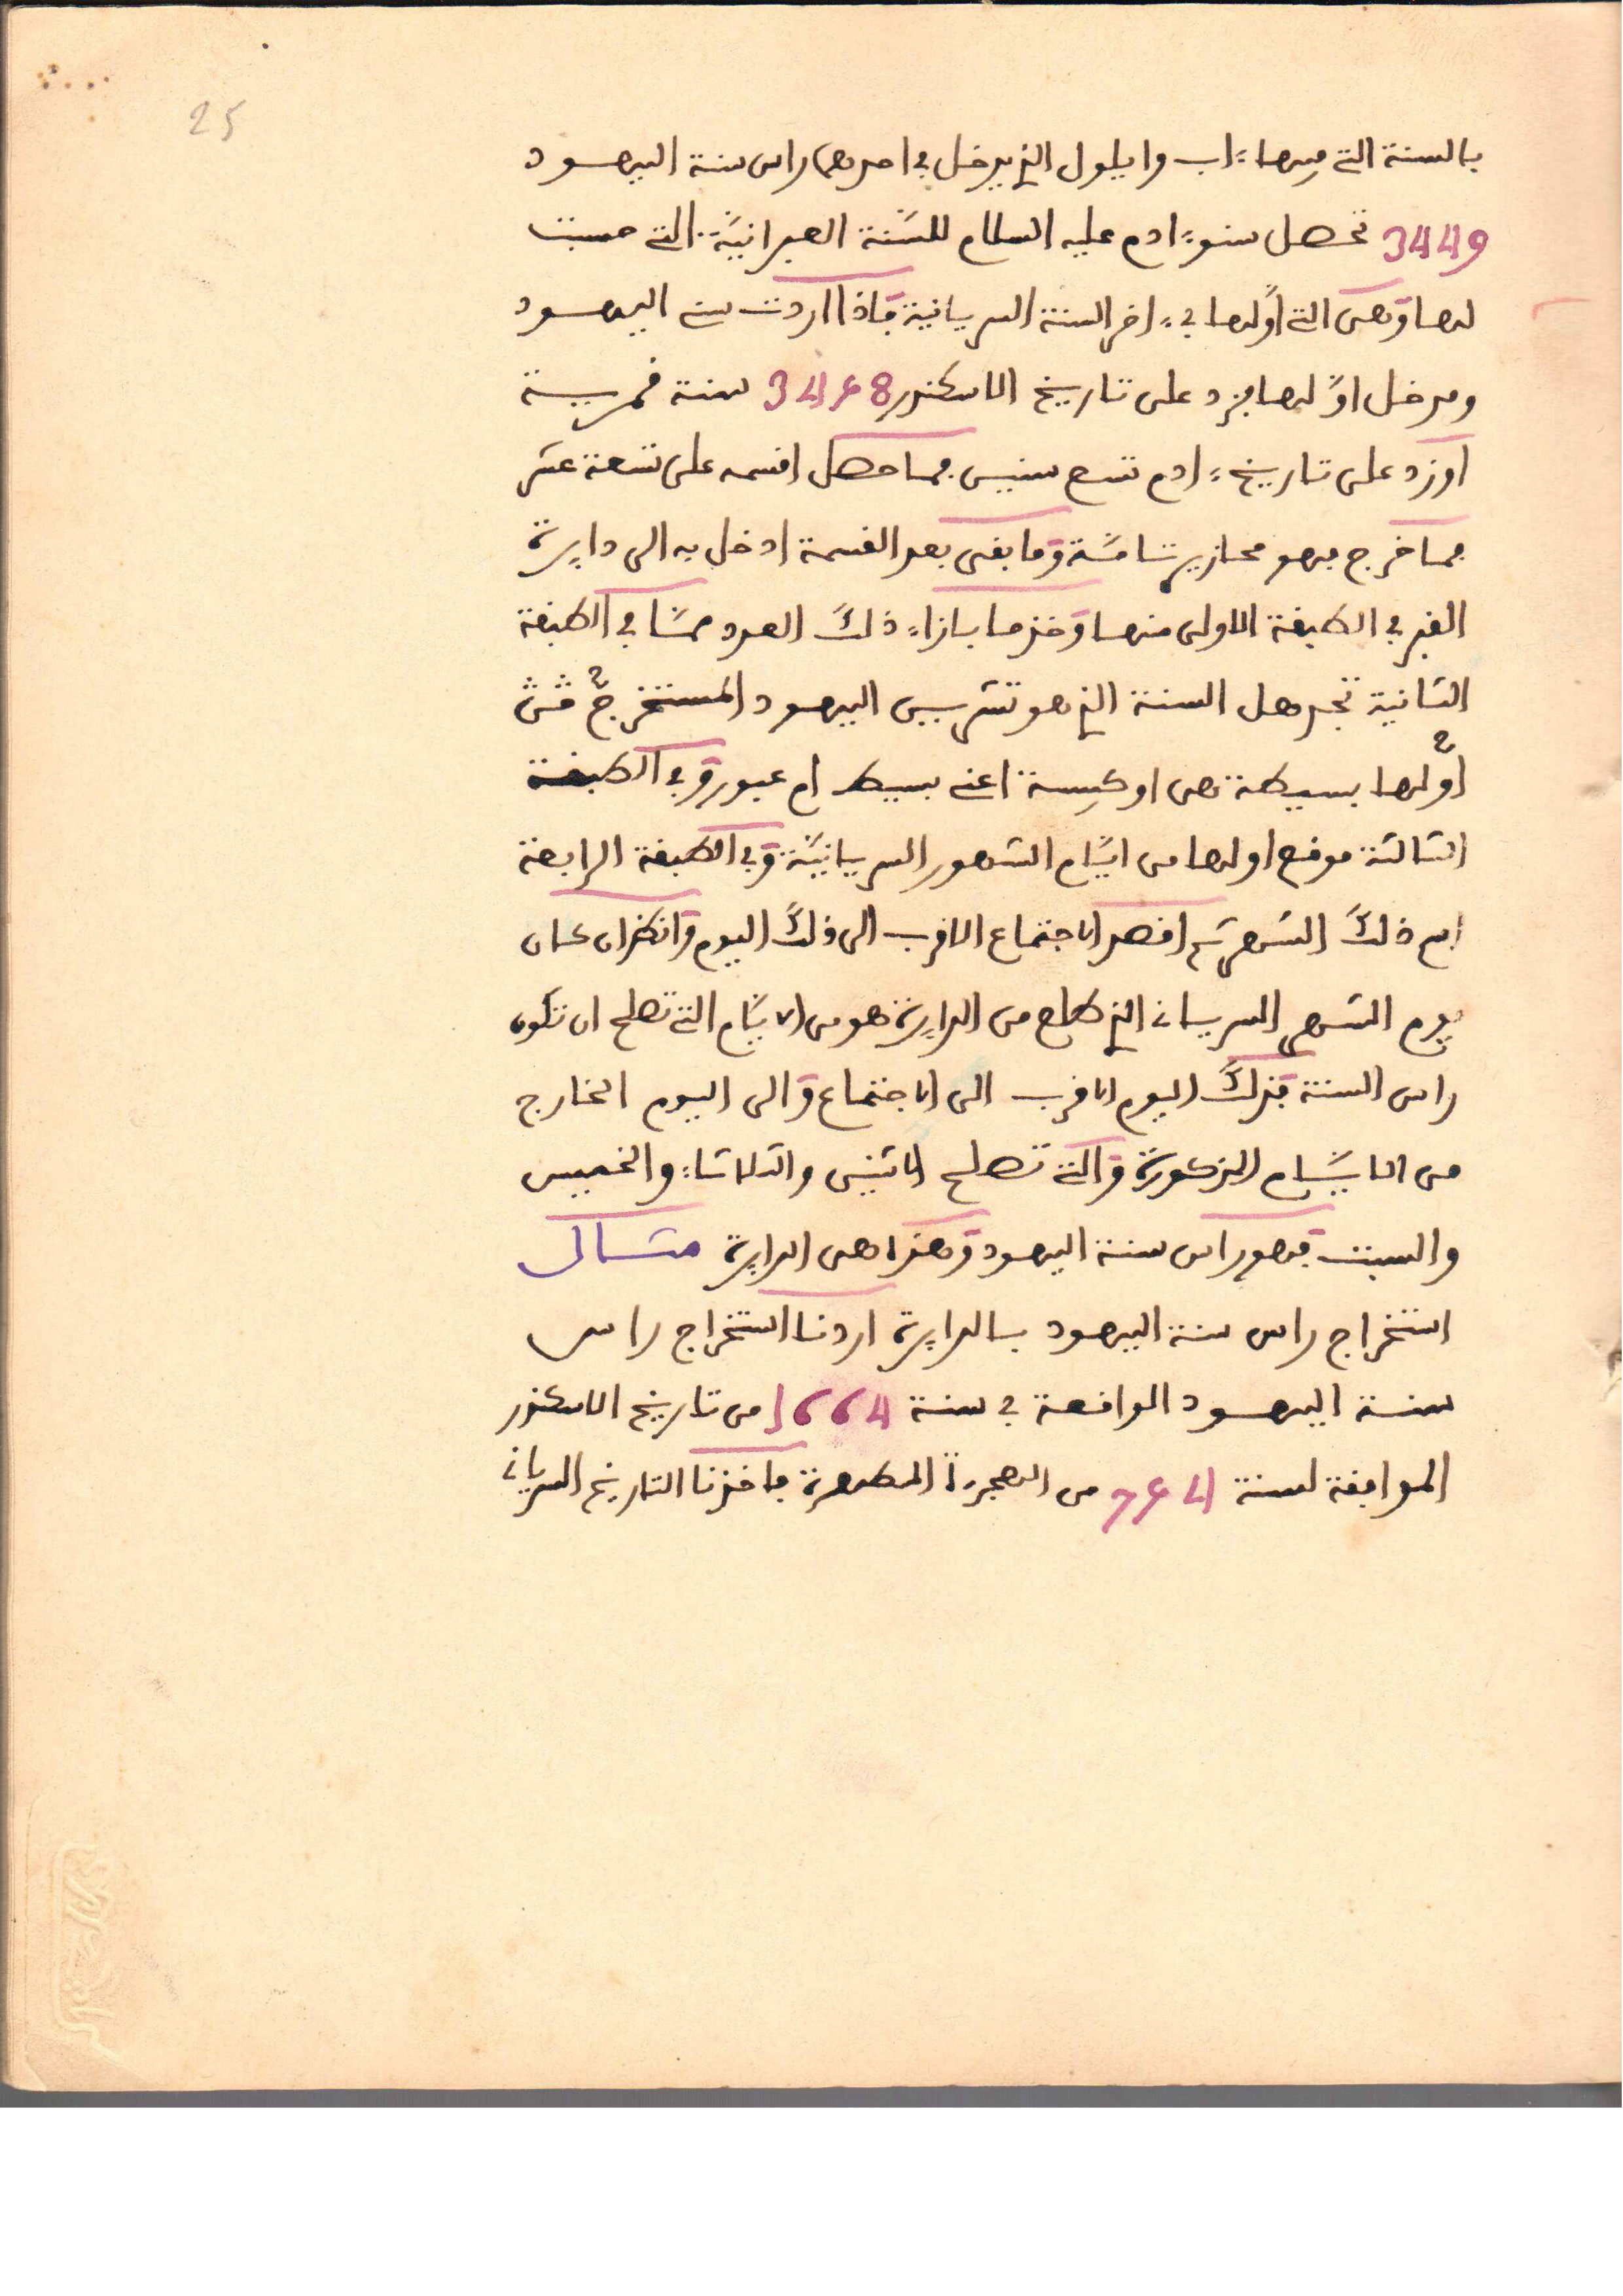 25
بالسنة التي فيها ءاب وايلول الذي يدخل في احدهما راس سنة اليهود
3449 تحصل سنو ءادم عليه السلام للسّنة العبرانيّة التي حسبت
لها وهى التي اوّلها في ءاخر السنة السريانية فاذا اردت سني اليهود
ومدخل اوّلها فزد على تاريخ الاسكندر 3458 سنة قمرية
اوزد على تاريخ ءادم تسع سنين فما حصل اقسمه على تسعة عشر
فما خرج فهو محازير تامّة وما بقى بعد القسمة ادخل به الى دايرة
الفبر في الطبقة الاولى منها وخذ ما بازاء ذلك العدد ممّا في الطبقة
الثانية تجد هل السنة الذي هو تشريين اليهود المستخرج
اوّلها بسيطة هى او كبيسة اعني بسيط ام عبور وفي الطبقة
الثالثة موقع اولها من ايّام الشهور السريانيّة وفي الطبقة الرابعة
اسم ذلك الشهر ثم اقصد الاجتماع الاقرب الى ذلك اليوم وانظر ان كان
يوم الشهر السرياني الذي طلع من الدايرة هو من الايّام التي تصلح ان تكون
راس السنة فذلك اليوم الاقرب الى الاجتماع والى اليوم الخارج
من الايّام المذكورة والتي تصلح الاثنين والثلاثاء والخميس
والسبت فهو راس سنة اليهود وهذا هى الدايرة مثال
استخراج راس سنة اليهود بالدايرة اردنا استخراج راس
سنة اليهود الواقعة في سنة 1664 من تاريخ الاسكندر
الموافقة لسنة 754 من الهجرة المطهرة فاخذنا التاريخ السرياني